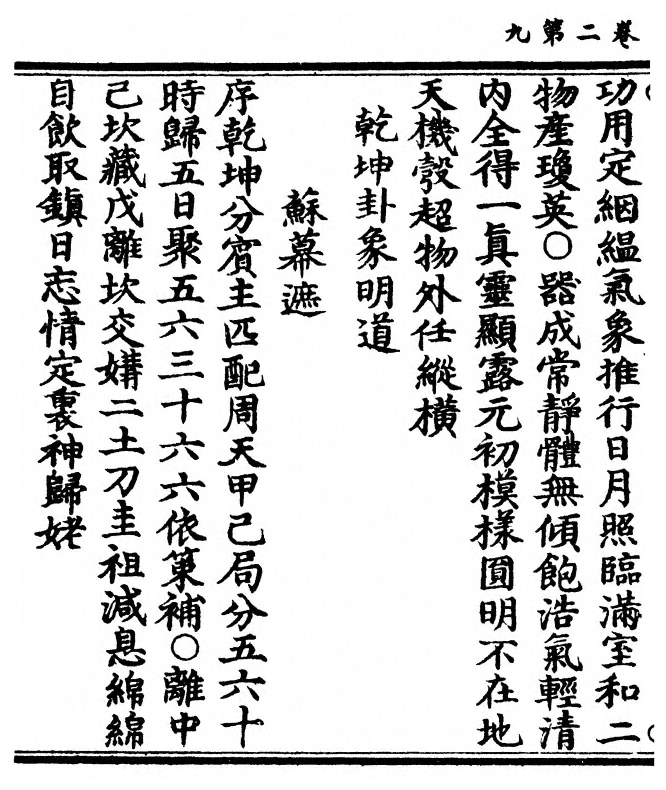 卷二第九
功用定絪縕氣象推行日月照臨滿室和二
物產瓊英〇器成常靜體無傾飽浩氣輕清
內全得一眞靈顯露元初模樣圓明不在地
天機彀超物外任縱橫
乾坤卦象明道
蘇幕遮
序乾坤分賓主匹配周天甲己局分五六十
時歸五日聚五六三十六六依策補〇離中
己坎藏戊離坎交媾二土刀圭祖減息綿綿
自飲取鎮日志情定裏神歸姥